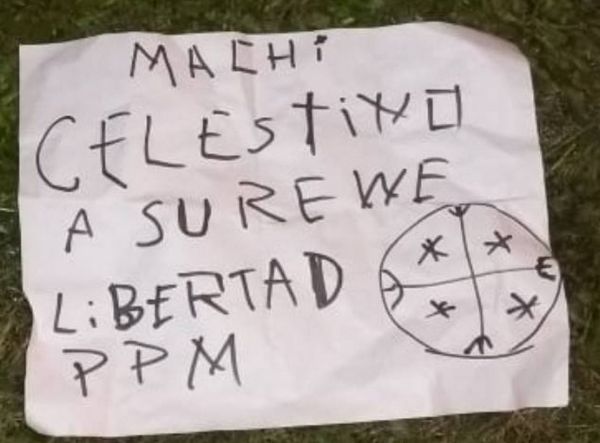 MACHi
CELESTiNO
A SU REWE
LiBERTAD
PPM